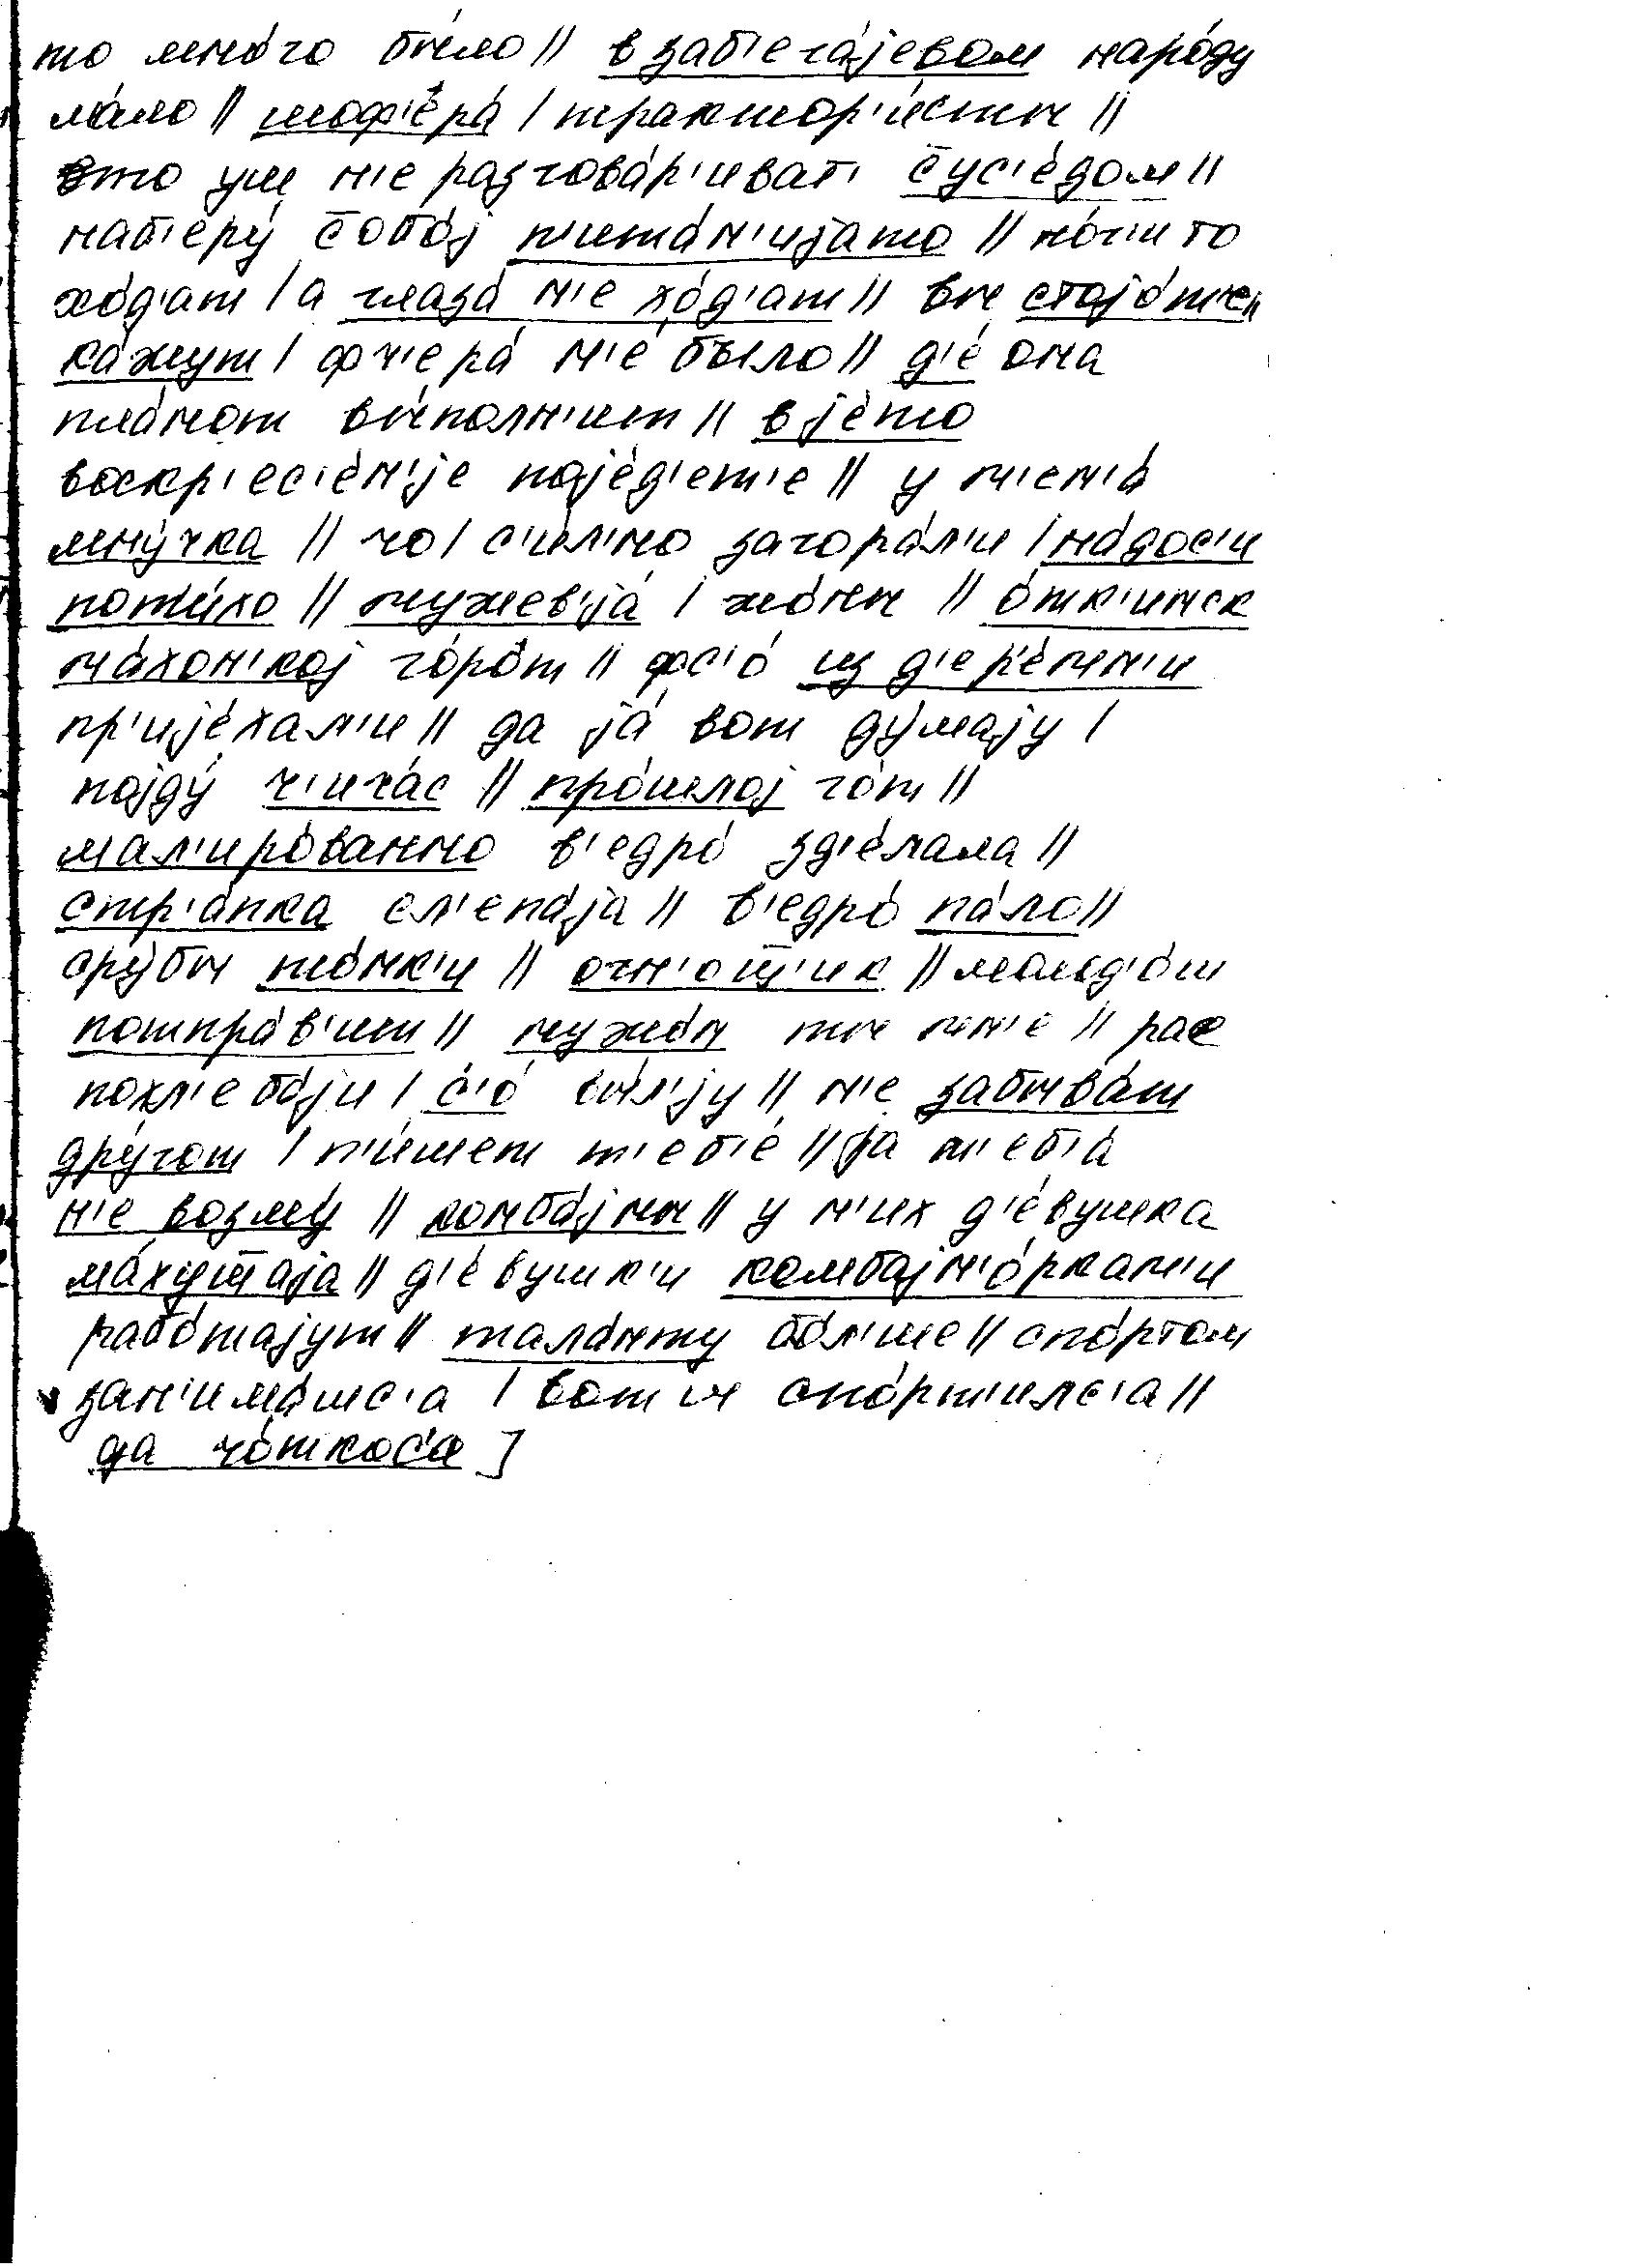 то мно́го бы́ло // в заб'ега́јевом наро́ду
ма́ло // шоф'ера́ / трактор'и́сты //
это уш н'е разгова́р'иват' с̄ус'е́дом //
наб'еру́ с̄обо́ј п'ита́н'ијато // но́г'и то
хо́д'ат / а глаза́ н'е хо́д'ат // вы стајо́те //
ка́жут / фч'ера́ н'е́ было // д'е́ она
пла́нот вы́полн'ит // в је́то
воскр'ес'е́н'је поје́д'ет'е // у м'ен'а́
мну́чка // чо / с'и́л'но загора́л'и / на́дос'и
поти́хо // мужев'ја́ / жо́ны // о́тк'инск
ма́хон'кој го́рот // фс'о́ из д'ер'е́мн'и
пр'ије́хал'и // да ја́ вот ду́мају /
појду́ ч'ича́с // про́шлој го́т //
мал'иро́ванно в'едро́ зд'е́лала //
стр'а́пка сл'епа́ја // в'едро́ па́ло //
сру́бы то́нк'и // огн'о́т̄'ик // молод'о́ш
потпра́в'ит // мужо́м ты мн'е́ // рас
похл'еба́ји / с'о́ вы́л'ју // н'е забыва́т
дру́гот / п'и́шет т'еб'е́ // ја т'еб'а́
н'е возму́ // конба́јны // у н'их д'е́вушка
ма́хут̄аја // д'е́вушк'и комбајн'о́ркам'и
рабо́тајут // тала́нту бо́л'ше // спо́ртом
зан'има́тс'а / вот и спо́рт'илс'а //
да чо́ткос'а ]